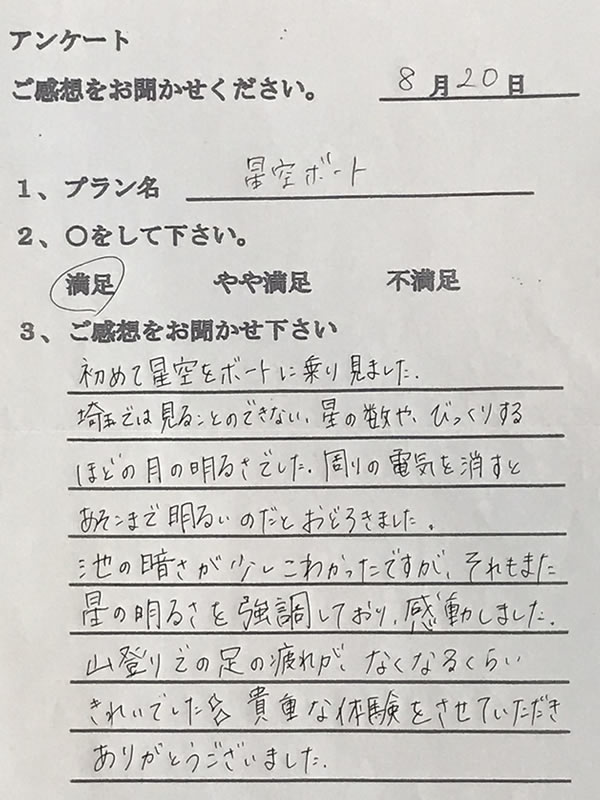 アンケート
ご感想をお聞かせください。 8月20日
1、プラン名 星空ボート
2、〇をして下さい。
満足 やや満足 不満足
3、ご感想をお聞かせ下さい
初めて星空をボートに乗り見ました.
埼玉では見ることのできない、星の数や、びっくりする
ほどの月の明るさでした.周りの電気を消すと
あそこまで明るいのだとおどろきました。
池の暗さが少しこわかったですが、それもまた
星の明るさを強調しており、感動しました.
山登りでの足の疲れが、なくなるくらい
きれいでした☆ 貴重な体験をさせていただき
ありがとうございました.